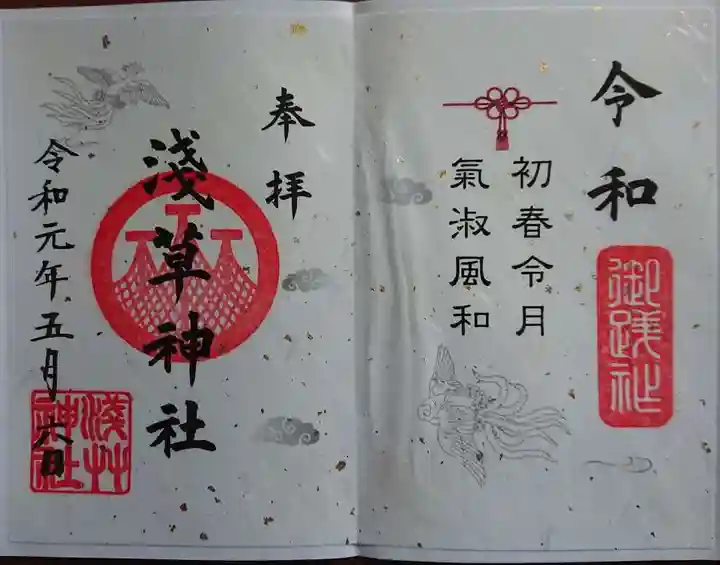 令和
初春令月
氣淑風和
御踐祚
奉拝
淺草神社
令和元年五月六日
淺艸神社